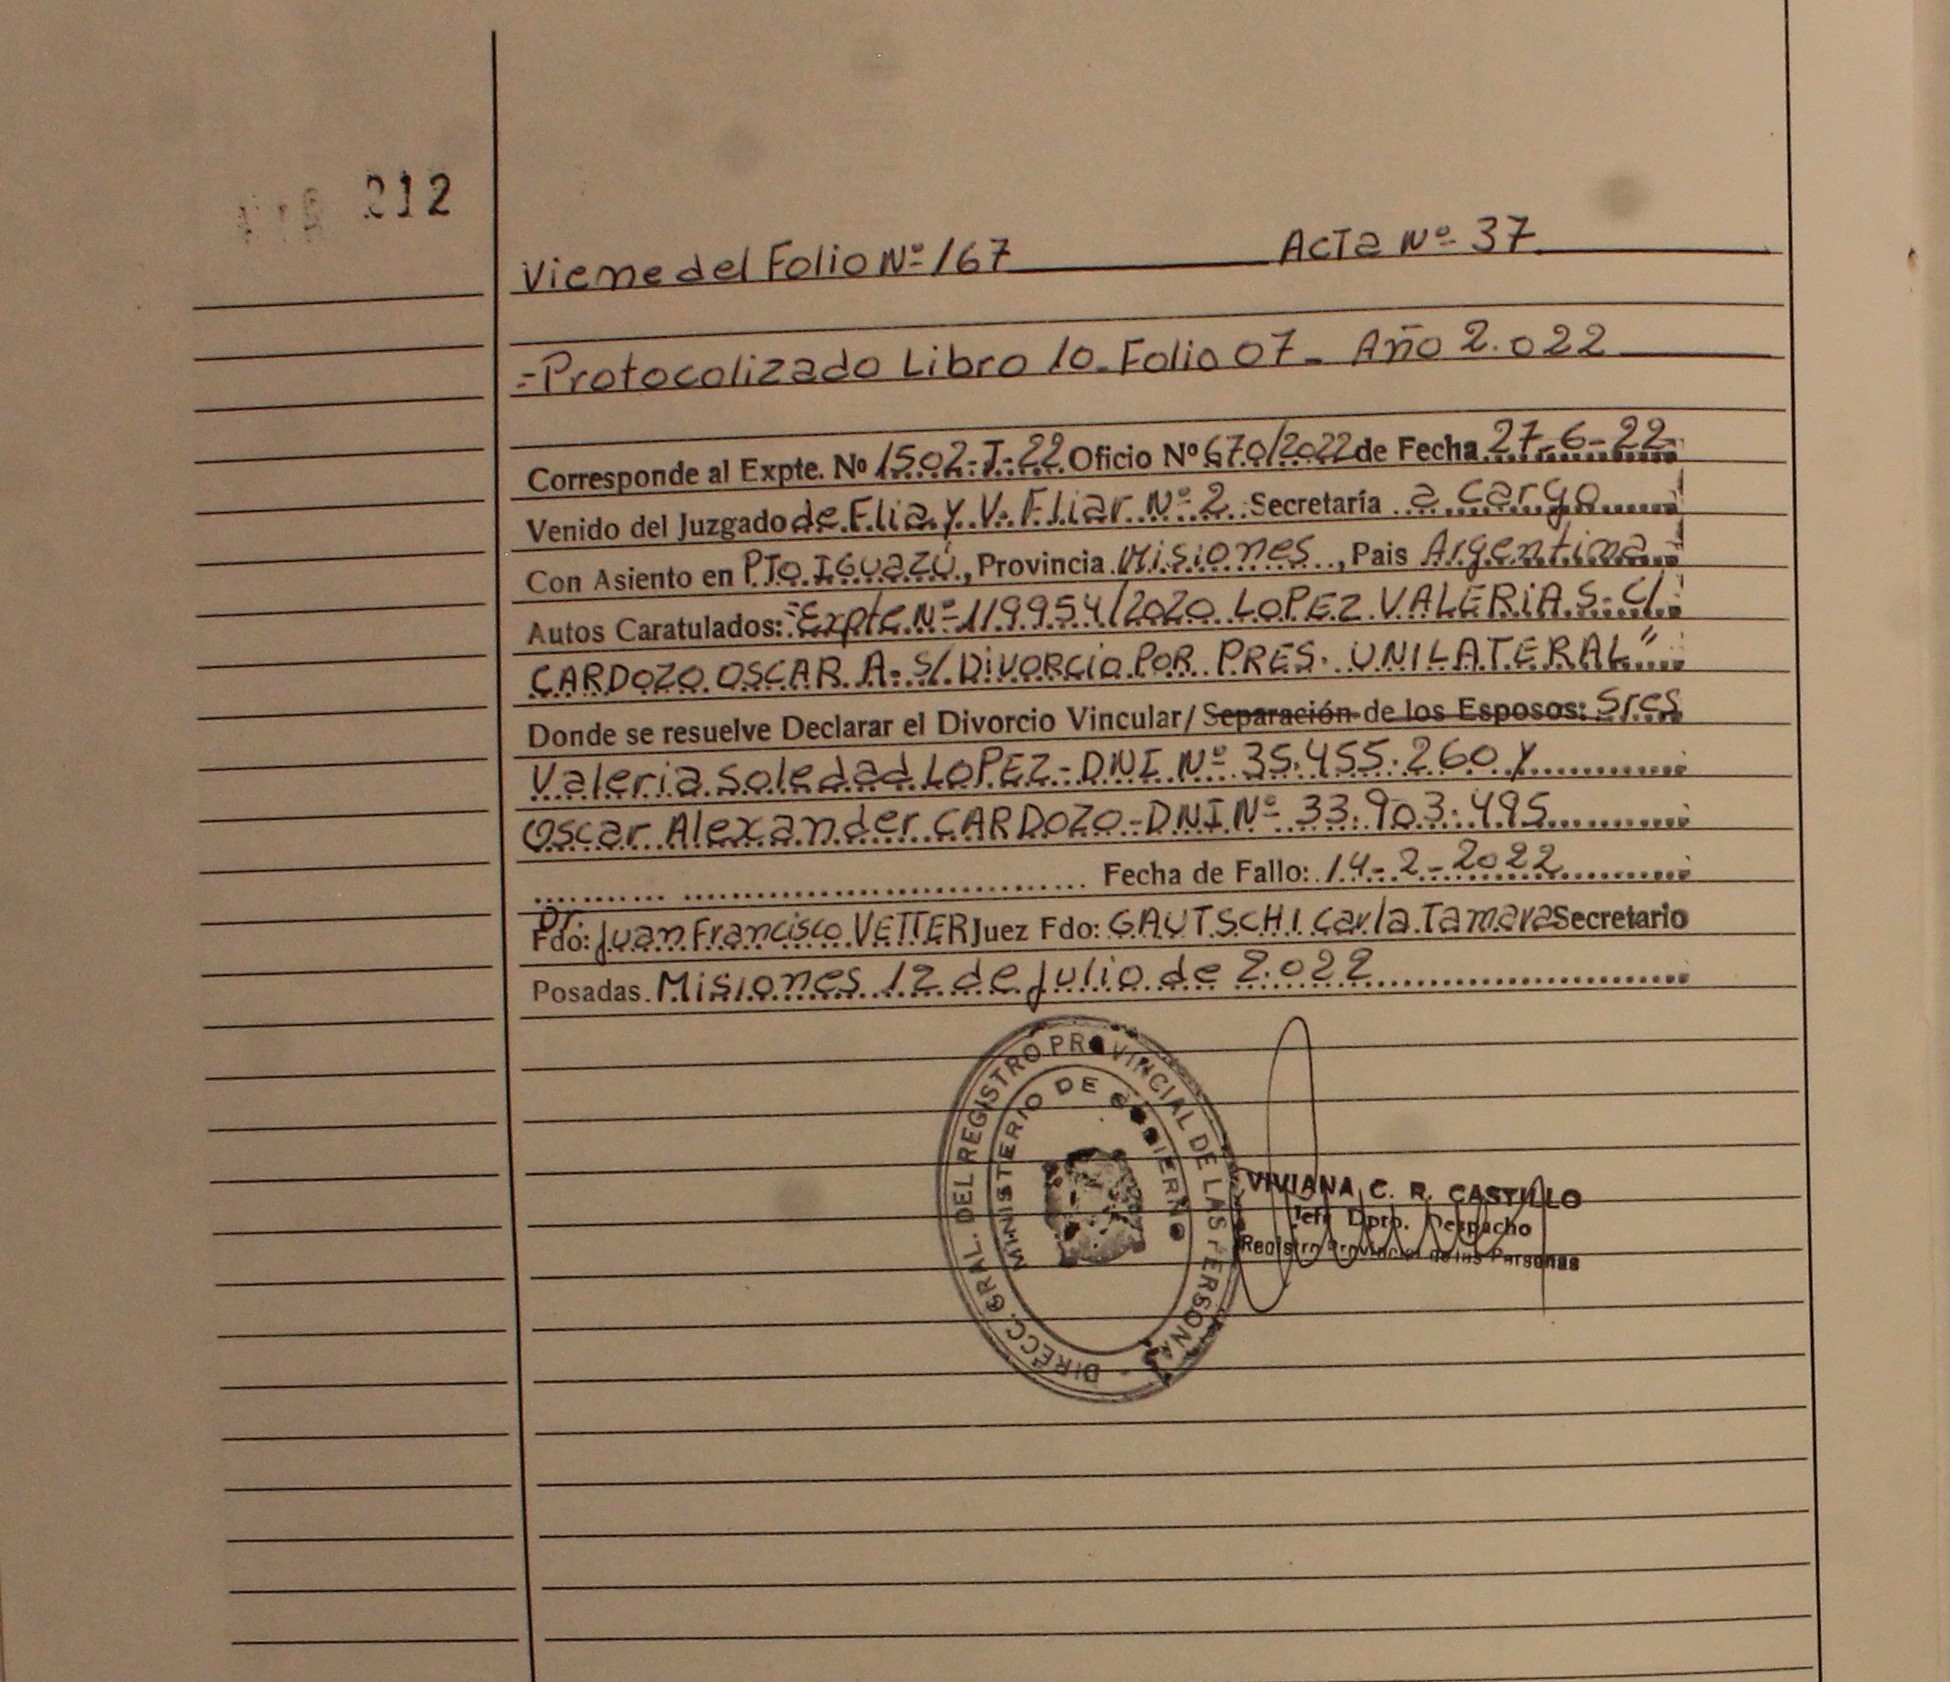 212
Viene del Folio Nº 167 Acta Nº 37
=Protocolizado Libro 10. Folio 07. Año 2.022
Corresponde al Expte. Nº 1502-J-22 Oficio Nº 670/2022 de Fecha 27-6-22
Venido del Juzgado de Flia y V. Fliar Nº 2 Secretaría a cargo
Con Asiento en PTO IGUAZÚ, Provincia Misiones, Pais Argentina
Autos Caratulados: "Expte Nº 119954/2020 LOPEZ VALERIA S. C/
CARDOZO OSCAR A. S/ DIVORCIO POR PRES. UNILATERAL"
Donde se resuelve Declarar el Divorcio Vincular/ Separación de los Esposos: Sres
Valeria Soledad LOPEZ-DNI Nº 35.455.260 y
Oscar Alexander CARDOZO-DNI Nº 33.903.495
Fecha de Fallo: 14-2-2022
Dr.
Fdo: Juan Francisco VETTER Juez Fdo: GAUTSCHI Carla Tamara Secretario
Posadas Misiones 12 de Julio de 2.022
DIRECC. GRAL. DEL REGISTRO PROVINCIAL DE LAS PERSONAS
MINISTERIO DE GOBIERNO
VIVIANA C. R. CASTILLO
Jefe Dpto. Despacho
Registro Provincial de las Personas